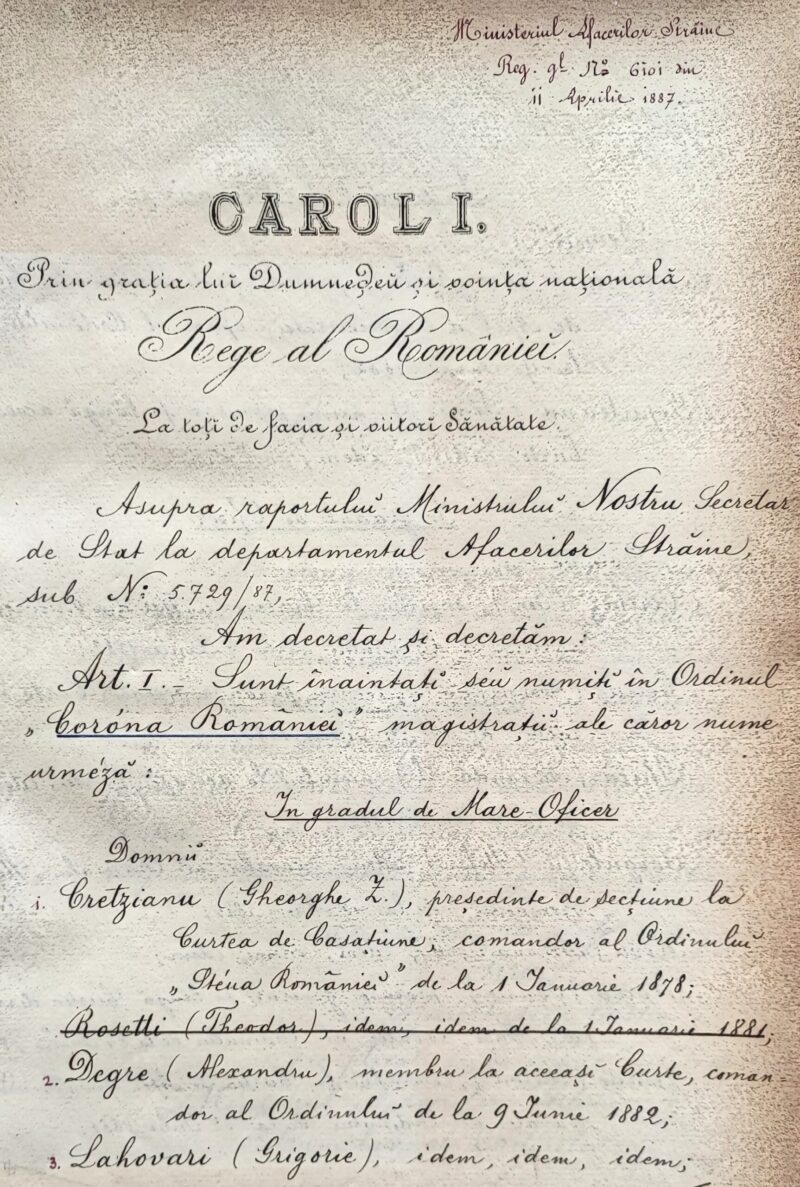 Ministeriul Afacerilor Străine
Reg. gl No 6101 din
11 Aprilie 1887.
CAROL I.
Prin grația lui Dumnedeŭ și voința națională
Rege al Românieĭ.
La toți de facia și viitori Sănătate.
Asupra raportuluĭ Ministruluĭ Nostru Secretar
de Stat la departamentul Afacerilor Străine,
sub No: 5.729/87,
Am decretat și decretăm:
Art. I. – Sunt înaintațĭ séŭ numițĭ în Ordinul
„Coróna Românieĭ” magistrațiĭ ale căror nume
urméză:
In gradul de Mare-Oficer
Domniĭ
1. Cretzianu (Gheorghe Z.), președinte de secțiune la
Curtea de Casațiune, comandor al Ordinuluĭ
„Stéua Românieĭ” de la 1 Ianuarie 1878;
Rosetti (Theodor), idem, idem de la 1 Ianuarie 1881;
2. Degre (Alexandru), membru la aceeașĭ Curte, coman-
dor al Ordinuluĭ de la 9 Iunie 1882;
3. Lahovari (Grigorie), idem, idem, idem;